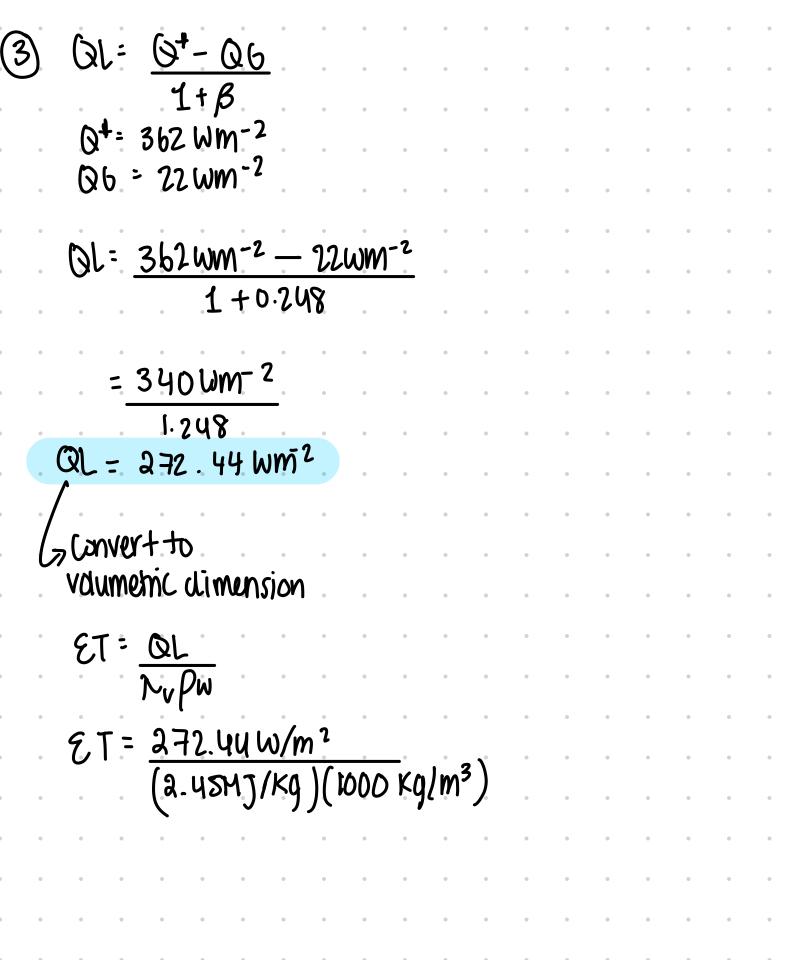 ③ QL = Q* - QG
1 + β
Q* = 362 Wm⁻²
QG = 22 Wm⁻²
QL = 362 Wm⁻² — 22 Wm⁻²
1 + 0.248
= 340 Wm⁻²
1.248
QL = 272.44 Wm⁻²
Convert to
volumetric dimension
ET = QL
λᵥρw
ET = 272.44 W/m²
(2.45MJ/Kg)(1000 Kg/m³)